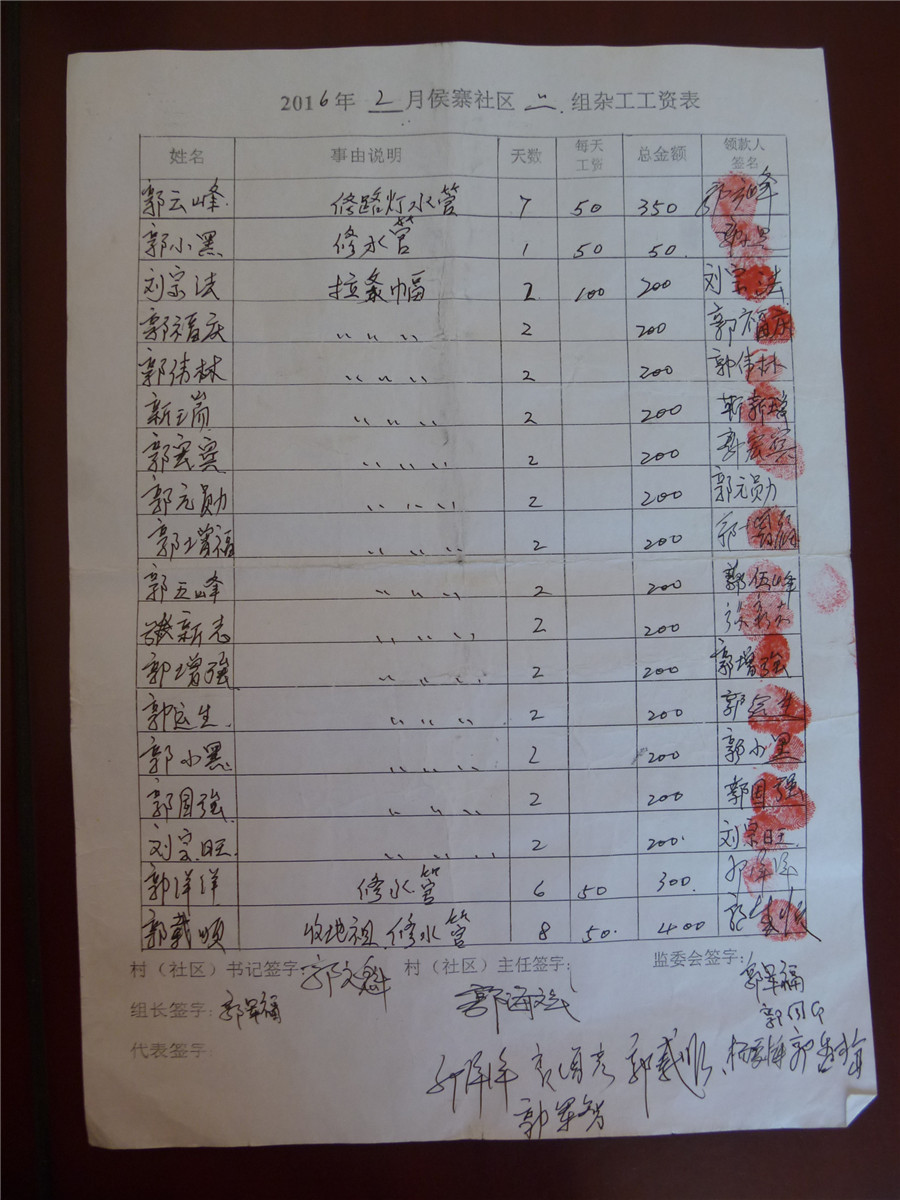 2016年 2 月侯寨社区 一 组杂工工资表
姓名 事由说明 天数 每天工资 总金额 领款人签名
郭云峰 修路灯水管 7 50 350 郭云峰
郭小黑 修水管 1 50 50
刘宗法 拉条幅 2 100 200 刘宗法
郭福庆 〃 〃 〃 2 200 郭福庆
郭伟林 〃 〃 〃 2 200 郭伟林
2 200
郭宏宾 〃 〃 〃 2 200 郭宏宾
郭元勋 〃 〃 〃 2 200 郭元勋
郭增福 〃 〃 〃 2 200 郭增福
郭五峰 〃 〃 〃 2 200 郭伍峰
张新志 〃 〃 〃 2 200
郭增强 〃 〃 〃 2 200 郭增强
郭运生 〃 〃 〃 2 200
郭小黑 〃 〃 〃 2 200 郭小黑
郭国强 〃 〃 〃 2 200 郭国强
刘宗旺 〃 〃 〃 2 200 刘宗旺
郭洋洋 修水管 6 50 300
郭载顺 收地租 修水管 8 50 400
村（社区）书记签字: 郭文魁 村（社区）主任签字: 监委会签字:
组长签字: 郭军福 郭海斌 郭军福
代表签字: 郭载顺
郭军智